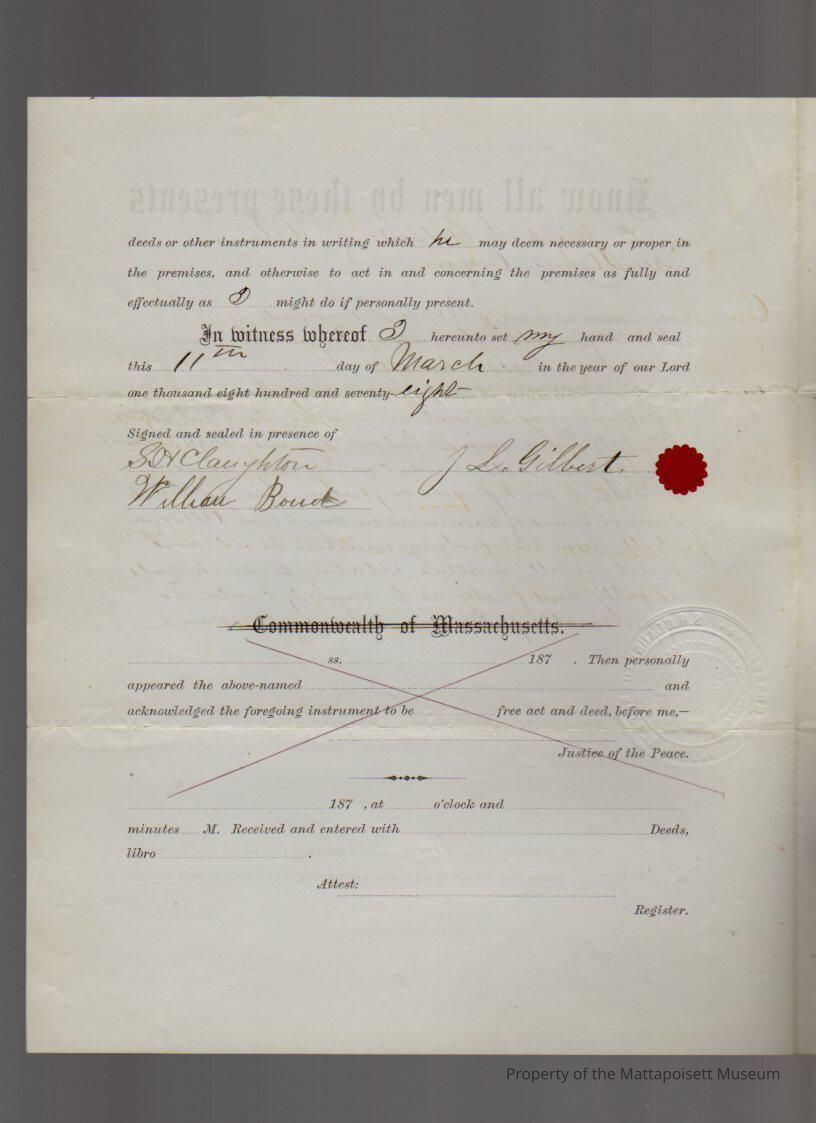 Know all men by these presents
deeds or other instruments in writing which he may deem necessary or proper in
the premises, and otherwise to act in and concerning the premises as fully and
effectually as I might do if personally present.
In witness whereof I hereunto set my hand and seal
this 11th day of March in the year of our Lord
one thousand eight hundred and seventy-eight
Signed and sealed in presence of
S H Claughton J L. Gilbert.
William Boud
Commonwealth of Massachusetts.
ss. 187 . Then personally
appeared the above-named and
acknowledged the foregoing instrument to be free act and deed, before me,—
Justice of the Peace.
187 , at o'clock and
minutes M. Received and entered with Deeds,
libro .
Attest:
Register.
Property of the Mattapoisett Museum